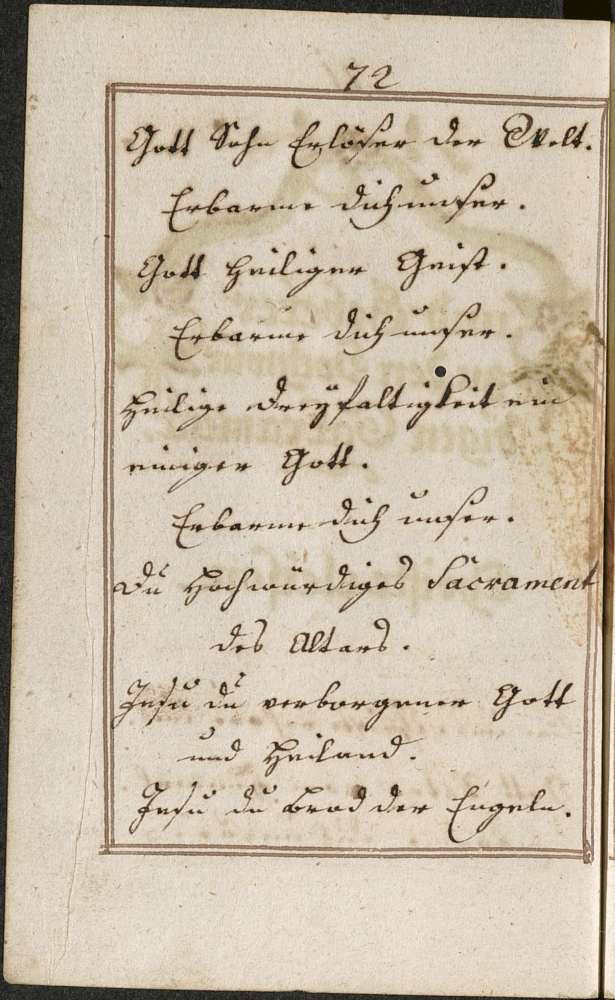 72
Gott Sohn Erlöser der Welt.
Erbarme dich unser.
Gott heiliger Geist.
Erbarme dich unser.
Heilige Dreyfaltigkeit ein
einiger Gott.
Erbarme dich unser.
Du Hochwürdiges Sacrament
des Altars.
Jesu du verborgener Gott
und Heiland.
Jesu du Brod der Engeln.